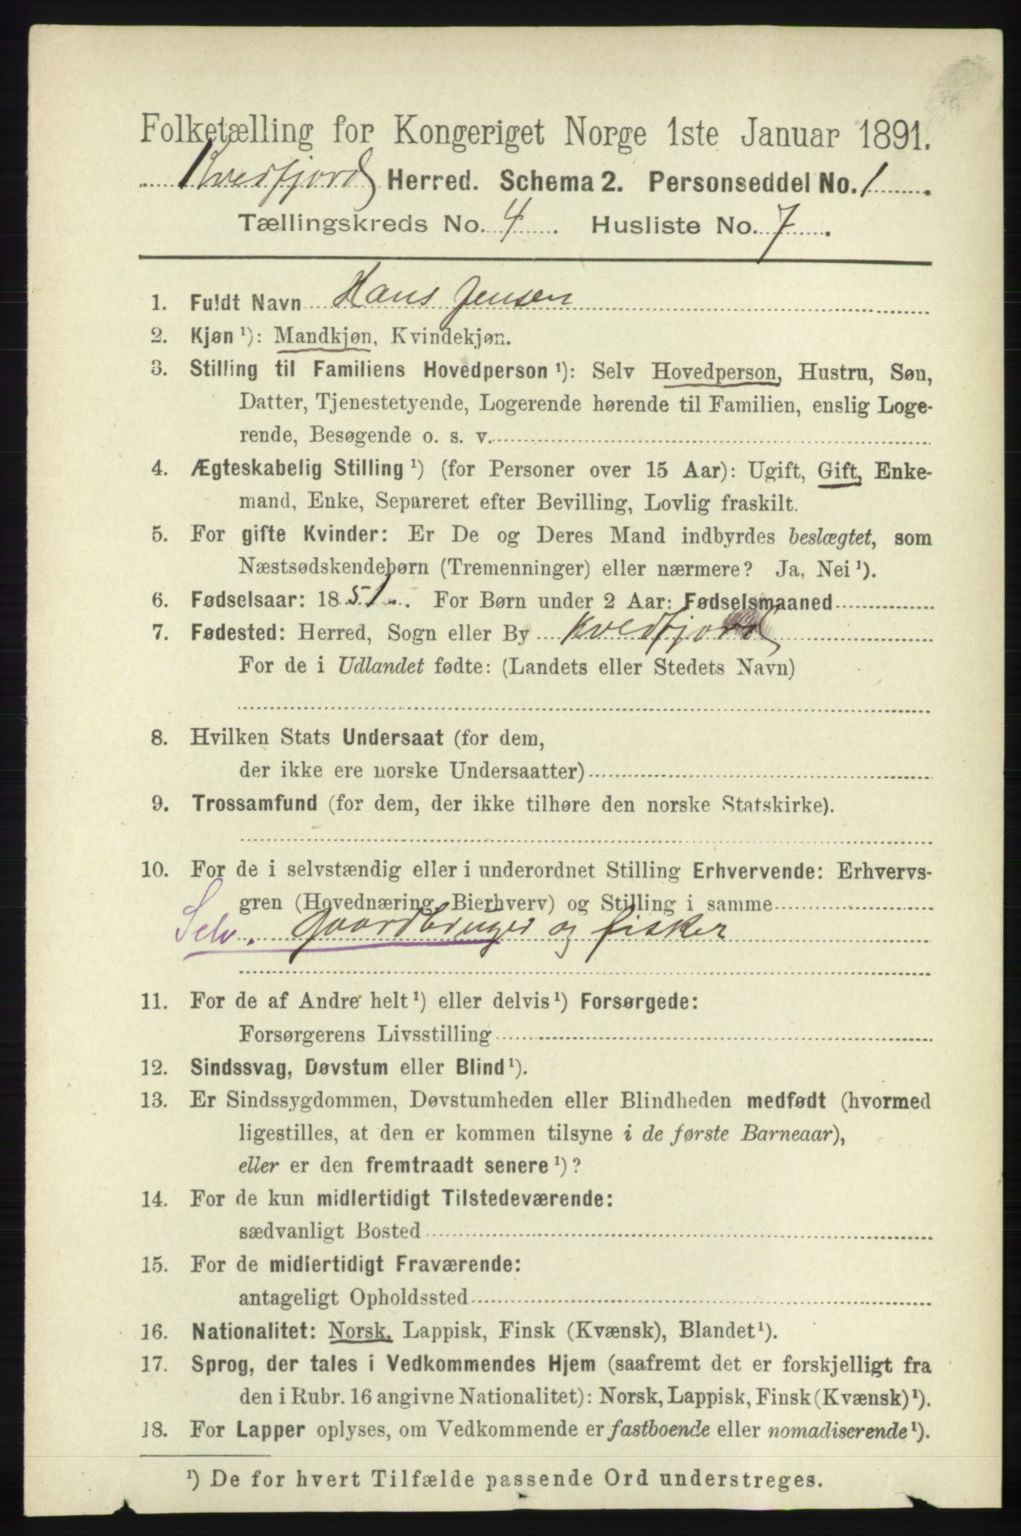 Folketælling for Kongeriget Norge 1ste Januar 1891.
Kvedfjord Herred. Schema 2. Personseddel No. 1.
Tællingskreds No. 4. Husliste No. 7.
1. Fuldt Navn Hans Jensen
2. Kjøn ¹): Mandkjøn, Kvindekjøn.
3. Stilling til Familiens Hovedperson ¹): Selv Hovedperson, Hustru, Søn,
Datter, Tjenestetyende, Logerende hørende til Familien, enslig Loge-
rende, Besøgende o. s. v.
4. Ægteskabelig Stilling ¹) (for Personer over 15 Aar): Ugift, Gift, Enke-
mand, Enke, Separeret efter Bevilling, Lovlig fraskilt.
5. For gifte Kvinder: Er De og Deres Mand indbyrdes beslægtet, som
Næstsødskendebørn (Tremenninger) eller nærmere? Ja, Nei ¹).
6. Fødselsaar: 1851. For Børn under 2 Aar: Fødselsmaaned
7. Fødested: Herred, Sogn eller By Kvedfjord
For de i Udlandet fødte: (Landets eller Stedets Navn)
8. Hvilken Stats Undersaat (for dem,
der ikke ere norske Undersaatter)
9. Trossamfund (for dem, der ikke tilhøre den norske Statskirke).
10. For de i selvstændig eller i underordnet Stilling Erhvervende: Erhvervs-
gren (Hovednæring, Bierhverv) og Stilling i samme
Selv. Gaardbruger og fisker
11. For de af Andre helt ¹) eller delvis ¹) Forsørgede:
Forsørgerens Livsstilling
12. Sindssvag, Døvstum eller Blind ¹).
13. Er Sindssygdommen, Døvstumheden eller Blindheden medfødt (hvormed
ligestilles, at den er kommen tilsyne i de første Barneaar),
eller er den fremtraadt senere ¹)?
14. For de kun midlertidigt Tilstedeværende:
sædvanligt Bosted
15. For de midlertidigt Fraværende:
antageligt Opholdssted
16. Nationalitet: Norsk, Lappisk, Finsk (Kvænsk), Blandet ¹).
17. Sprog, der tales i Vedkommendes Hjem (saafremt det er forskjelligt fra
den i Rubr. 16 angivne Nationalitet): Norsk, Lappisk, Finsk (Kvænsk) ¹).
18. For Lapper oplyses, om Vedkommende er fastboende eller nomadiserende ¹).
¹) De for hvert Tilfælde passende Ord understreges.